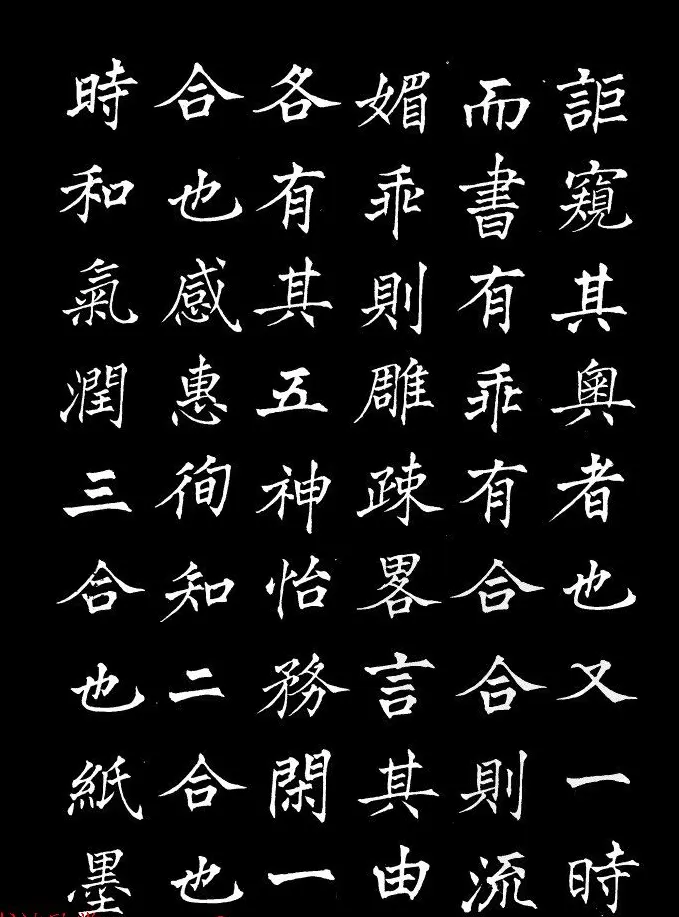 詎窺其奧者也又一時
而書有乖有合合則流
媚乖則雕疎畧言其由
各有其五神怡務閑一
合也感惠徇知二合也
時和氣潤三合也紙墨